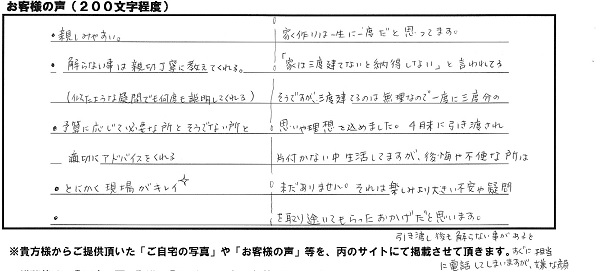 お客様の声（２００文字程度）
・親しみやすい。
・解らない事は親切丁寧に教えてくれる。
（似たような疑問でも何度も説明してくれる）
・予算に応じて必要な所とそうでない所と
適切にアドバイスをくれる
・とにかく現場がキレイ
・
家作りは一生に一度だと思ってます。
「家は三度建てないと納得しない」と言われてる
そうですが、三度建てるのは無理なので一度に三度分の
思いや理想を込めました。4月末に引き渡され
片付かない中生活してますが、後悔や不便な所は
まだありません。それは楽しみより大きい不安や疑問
を取り除いてもらったおかげだと思います。
引き渡し後も解らない事があると
すぐに担当
に電話してしまいますが、嫌な顔
※貴方様からご提供頂いた「ご自宅の写真」や「お客様の声」等を、丙のサイトにて掲載させて頂きます。